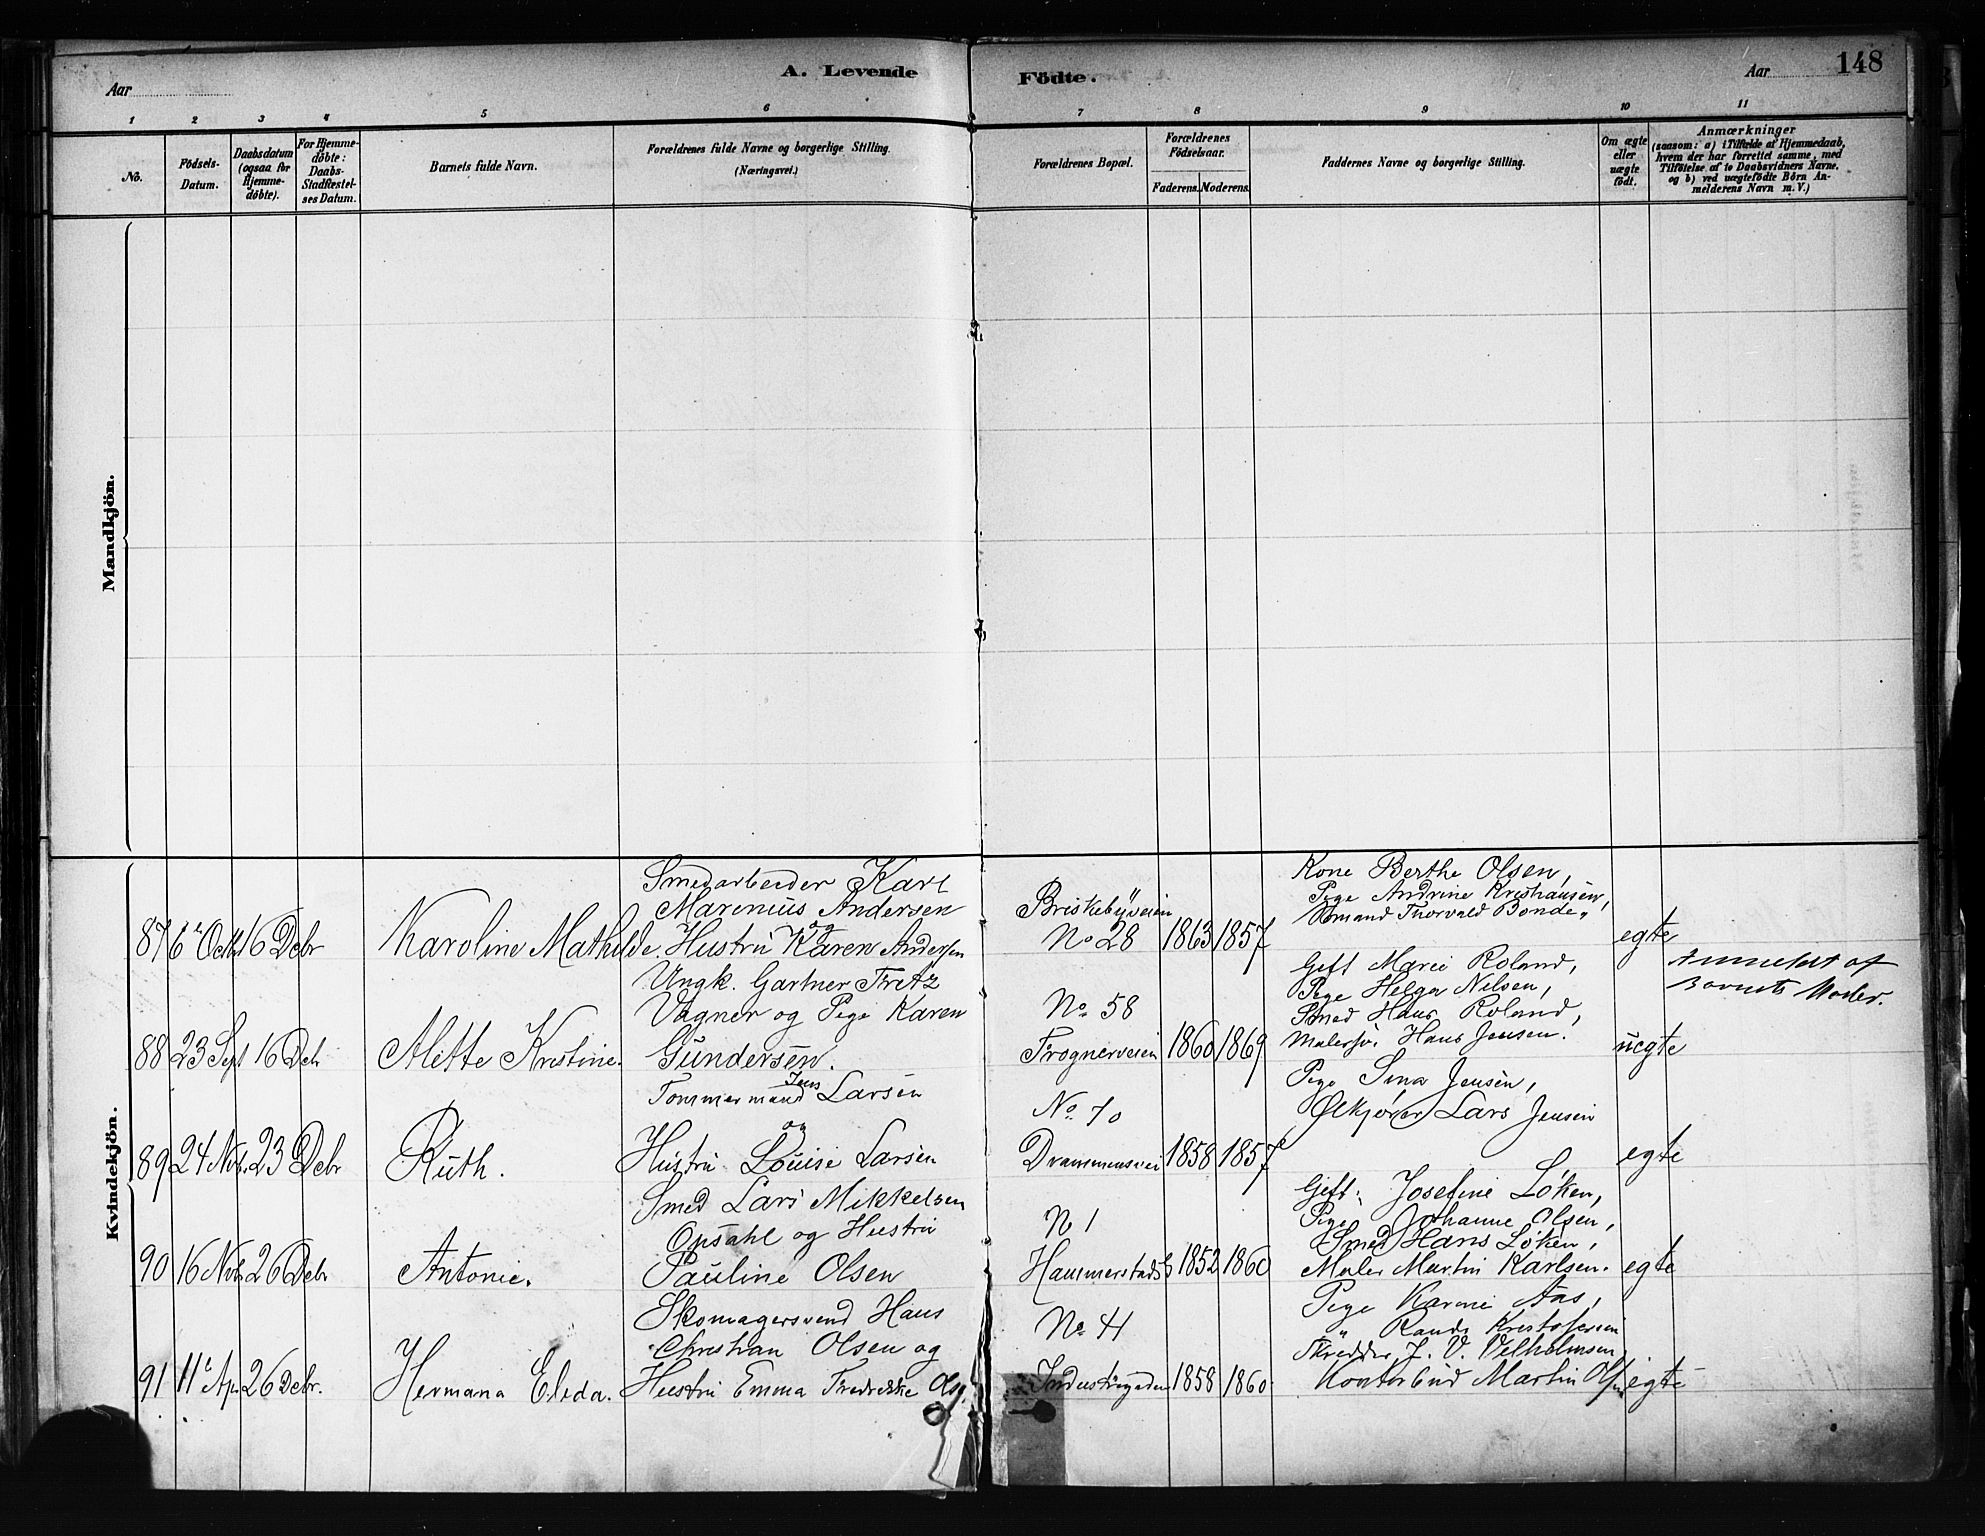 148
A. Levende Födte.
Aar
Aar
1 2 3 4 5 6 7 8 9 10 11
No.
Födsels-
Datum.
Daabsdatum
(ogsaa for
Hjemme-
døbte).
For Hjemme-
døbte:
Daabs-
Stadfæstel-
ses Datum.
Barnets fulde Navn.
Forældrenes fulde Navne og borgerlige Stilling.
(Næringsvei.)
Forældrenes Bopæl.
Forældrenes
Födselsaar.
Faderens. Moderens.
Faddernes Navne og borgerlige Stilling.
Om ægte
eller
uægte
födt.
Anmærkninger
(saasom: a) i Tilfælde af Hjemmedaab,
hvem der har forrettet samme, med
Tilföielse af to Daabsvidners Navne.
og b) ved uægtefödte Börn An-
melderens Navn m. V.)
Mandkjön.
Kvindekjön.
87 6 Octb 16 Debr
Karoline Mathilde.
Smedarbeider Karl
Marinius Andersen
og
Hustru Karen Andersen
Briskebyveien
No 28
1863 1857
Kone Berthe Olsen,
Pige Andrine Kristiansen,
Thorvald Bonde.
egte
88 23 Sept 16 Deb
Alette Kristine.
Ungk. Gartner Fritz
Vagner og Pige Karen
Gundersen.
No. 58
Frognerveien
1860 1869
Gift Marie Roland,
Pige Helga Nilsen,
Smed Hans Roland,
Malersv. Hans Jensen.
uegte
Anmeldt af
Barnets Moder.
89 24 Nvb. 23 Debr
Ruth.
Tømmermand Jens Larsen
og
Hustru Louise Larsen
No. 70
Drammensvei
1858 1857
Pige Sina Jensen,
Ølkjører Lars Jensen
egte
90 16 Nvb 26 Debr
Antonie.
Smed Lars Mikkelsen
Opsahl og Hustru
Pauline Olsen
N 1
Hammerstadsg
1852 1860
Gift Josefine Løken,
Pige Johanne Olsen,
Smed Hans Løken,
Maler Martin Karlsen.
egte
91 11 Ap 26 Debr.
Hermana Elida.
Skomagersvend Hans
Christian Olsen og
Hustru Emma Fredrikke Olsen
No. 41
Industrigaden
1858 1860
Pige Karine Aas,
Randi Kristofersen
Skrædder J. V. Velholmsen
Kontorbud Martin Olsen
egte